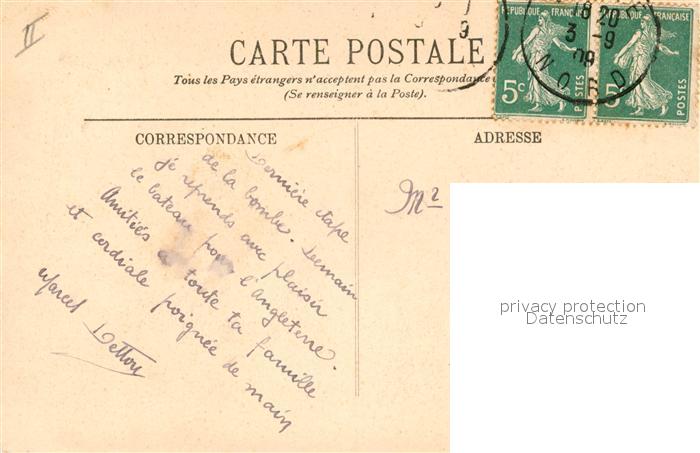 II
CARTE POSTALE
Tous les Pays étrangers n'acceptent pas la Correspondance
(Se renseigner à la Poste).
RÉPUBLIQUE FRANÇAISE
5c
POSTES
RÉPUBLIQUE FRANÇAISE
5
POSTES
18 20
3 -9
09
NORD
9
CORRESPONDANCE
Dernière étape
de la bombe. Demain
je reprends avec plaisir
le bateau pour l'Angleterre.
Amitiés à toute ta famille
et cordiale poignée de main
Marcel
ADRESSE
Mr
privacy protection
Datenschutz